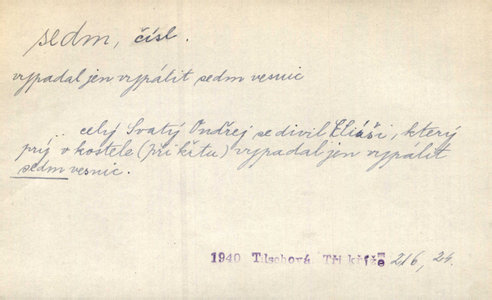 sedm, čísl.
vypadal jen vypálit sedm vesnic
.. celý Svatý Ondřej se divil Eliáši, který
prý v kostele (při křtu) vypadal jen vypálit
sedm vesnic.
1940 Tilschová Tři kříže 216, 24.